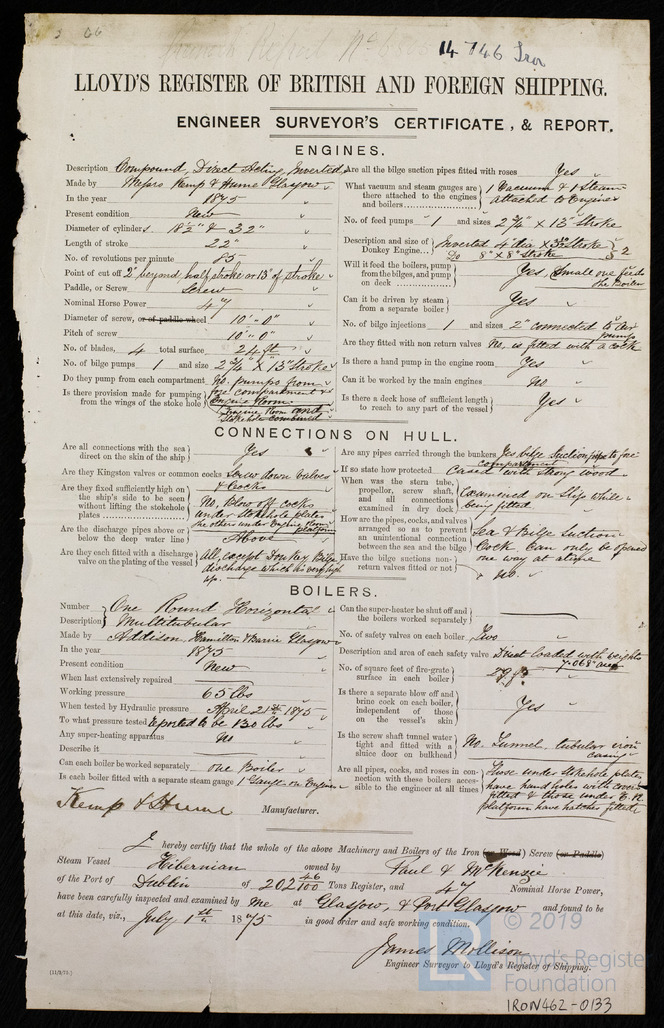 14746 Iron
LLOYD'S REGISTER OF BRITISH AND FOREIGN SHIPPING.
ENGINEER SURVEYOR'S CERTIFICATE, & REPORT.
ENGINES.
Description Compound, Direct Acting, Inverted,
Made by Messrs Kemp & Hume Glasgow
In the year 1875
Present condition New
Diameter of cylinders 18½" & 32"
Length of stroke 22"
No. of revolutions per minute 85
Point of cut off 2" beyond half stroke or 13" of stroke
Paddle, or Screw Screw
Nominal Horse Power 47
Diameter of screw, or of paddle wheel 10'-0"
Pitch of screw 10'-0"
No. of blades, 4 total surface 24 ft
No. of bilge pumps 1 and size 2¾" × 13" Stroke
Do they pump from each compartment No. pumps from
Is there provision made for pumping from the wings of the stoke hole fore compartment &
Engine Room
Engine Room and
Stokehole combined
Are all the bilge suction pipes fitted with roses Yes
What vacuum and steam gauges are there attached to the engines and boilers 1 Vacuum & 1 Steam
attached to Engines
No. of feed pumps 1 and sizes 2¾" × 13" Stroke
Description and size of Donkey Engine Inverted 4" dia × 3" Stroke
Do 8" × 8" Stroke
Will it feed the boilers, pump from the bilges, and pump on deck Yes, Small one feeds
the Boiler
Can it be driven by steam from a separate boiler Yes
No. of bilge injections 1 and sizes 2" connected to air
pumps
Are they fitted with non return valves No. is fitted with a cock
Is there a hand pump in the engine room Yes
Can it be worked by the main engines no
Is there a deck hose of sufficient length to reach to any part of the vessel Yes
CONNECTIONS ON HULL.
Are all connections with the sea direct on the skin of the ship Yes
Are they Kingston valves or common cocks Screw down valves
& Cocks
Are they fixed sufficiently high on the ship's side to be seen without lifting the stokehole plates No, Blow off cocks
under Stokehole plates
the others under Engine Room
platform
Are the discharge pipes above or below the deep water line Above
Are they each fitted with a discharge valve on the plating of the vessel All, except Donkey Bilge
discharge which is very high
up.
Are any pipes carried through the bunkers Yes bilge suction pipe to fore
compartment
If so state how protected Cased with strong wood
When was the stern tube, propeller, screw shaft, and all connections examined in dry dock Examined on Slip while
being fitted
How are the pipes, cocks, and valves arranged so as to prevent an unintentional connection between the sea and the bilge Sea & Bilge suction
Cock can only be opened
one way at a time
Have the bilge suctions non-return valves fitted or not no.
BOILERS.
Number One Round Horizontal
Description Multitubular
Made by Addison, Hamilton & Barrie Glasgow
In the year 1875
Present condition New
When last extensively repaired
Working pressure 65 lbs
When tested by Hydraulic pressure April 21st 1875
To what pressure tested reported to be 130 lbs
Any super-heating apparatus No
Describe it
Can each boiler be worked separately one Boiler
Is each boiler fitted with a separate steam gauge 1 Gauge on Engine
Kemp & Hume Manufacturer.
Can the super-heater be shut off and the boilers worked separately
No. of safety valves on each boiler Two
Description and area of each safety valve Direct loaded with weights
7.068" area
No. of square feet of fire-grate surface in each boiler
Is there a separate blow off and brine cock on each boiler, independent of those on the vessel's skin Yes
Is the screw shaft tunnel water tight and fitted with a sluice door on bulkhead No. Tunnel, tubular iron
casing
Are all pipes, cocks, and roses in connection with these boilers accessible to the engineer at all times Those under Stokehole plates
have hand holes with covers
fitted & those under E. R.
platform have hatches fitted
I hereby certify that the whole of the above Machinery and Boilers of the Iron (or Wood) Screw (or Paddle)
Steam Vessel Hibernian owned by Paul & McKenzie
of the Port of Dublin of 202 46/100 Tons Register, and 47 Nominal Horse Power,
have been carefully inspected and examined by me at Glasgow, & Port Glasgow and found to be
at this date, viz., July 1st 1875 in good order and safe working condition.
James Mollison
Engineer Surveyor to Lloyd's Register of Shipping.
[11/9/72.]
© 2019
Lloyd's Register
Foundation
IRON462-0133